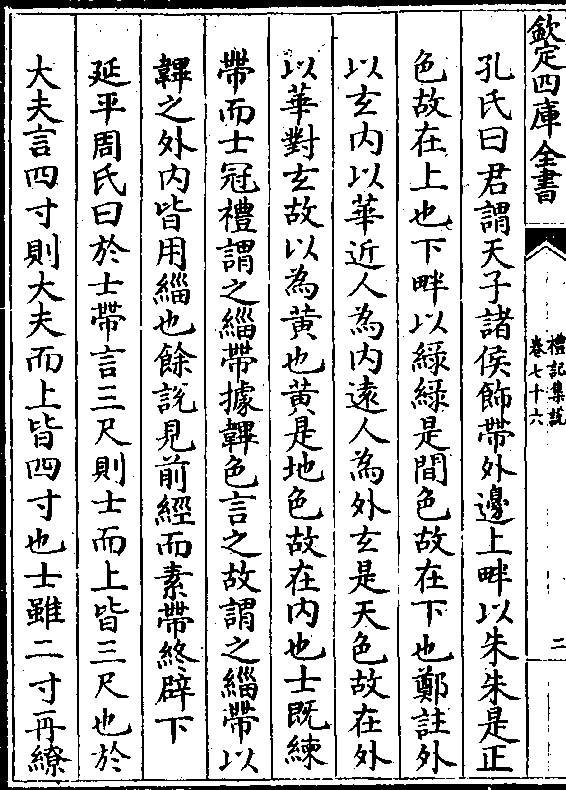 欽定四庫全書
禮記集說
卷七十六
二
孔氏曰君謂天子諸侯飾帶外邊上畔以朱朱是正
色故在上也下畔以綠綠是間色故在下也鄭註外
以玄内以華近人為内逺人為外玄是天色故在外
以華對玄故以為黄也黄是地色故在内也士既練
帶而士冠禮謂之緇帶據韠色言之故謂之緇帶以
韠之外内皆用緇也餘說見前經而素帶終辟下
延平周氏曰於士帶言三尺則士而上皆三尺也於
大夫言四寸則大夫而上皆四寸也士雖二寸再繚